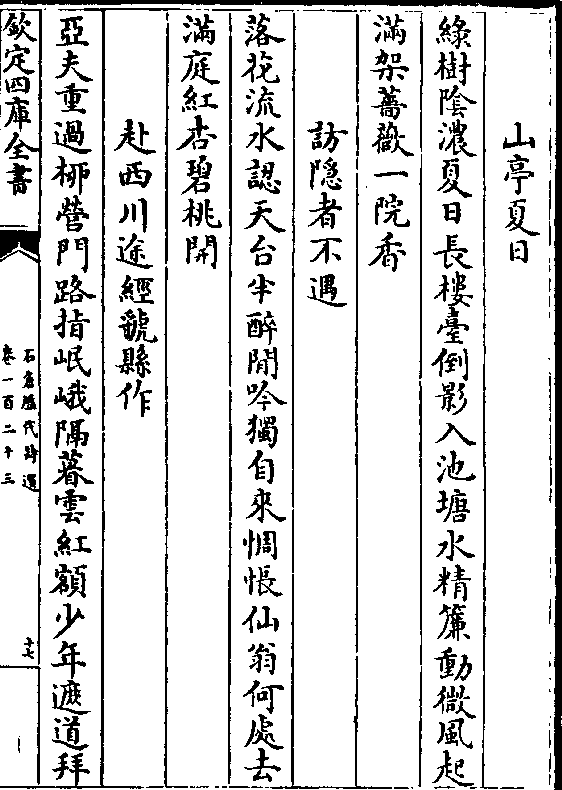 山亭夏日
綠樹隂濃夏日長樓臺倒影入池塘水精簾動微風起
滿架薔薇一院香
訪隠者不遇
落花流水認天台半醉閒吟獨自來惆悵仙翁何處去
滿庭紅杏碧桃開
赴西川途經虢縣作
亞夫重過桞營門路指岷峨隔暮雲紅額少年遮道拜
欽定四庫全書
石倉歴代詩選
卷一百二十三
十七